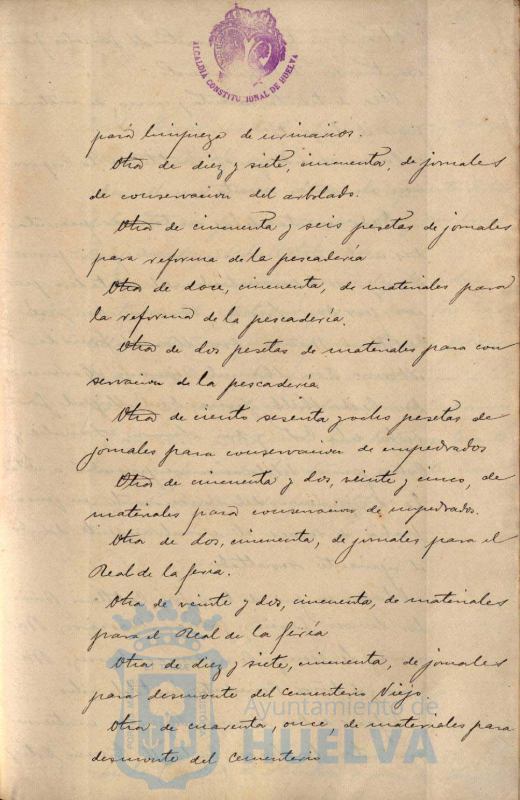 ALCALDIA CONSTITUCIONAL DE HUELVA
para limpieza de urinarios.
Otra de diez y siete, cincuenta, de jornales
de conservacion del arbolado.
Otra de cincuenta y seis pesetas de jornales
para reforma de la pescadería
Otra de doce, cincuenta, de materiales para
la reforma de la pescadería.
Otra de dos pesetas de materiales para con
servacion de la pescadería
Otra de ciento sesenta y ocho pesetas de
jornales para conservacion de empedrados
Otra de cincuenta y dos, veinte y cinco, de
materiales para conservacion de empedrados.
Otra de dos, cincuenta, de jornales para el
Real de la feria.
Otra de veinte y dos, cincuenta, de materiales
para el Real de la feria
Otra de diez y siete, cincuenta, de jornales
para desmonte del cementerio Viejo.
Otra de cuarenta, once, de materiales para
desmonte del cementerio
Ayuntamiento de
HUELVA